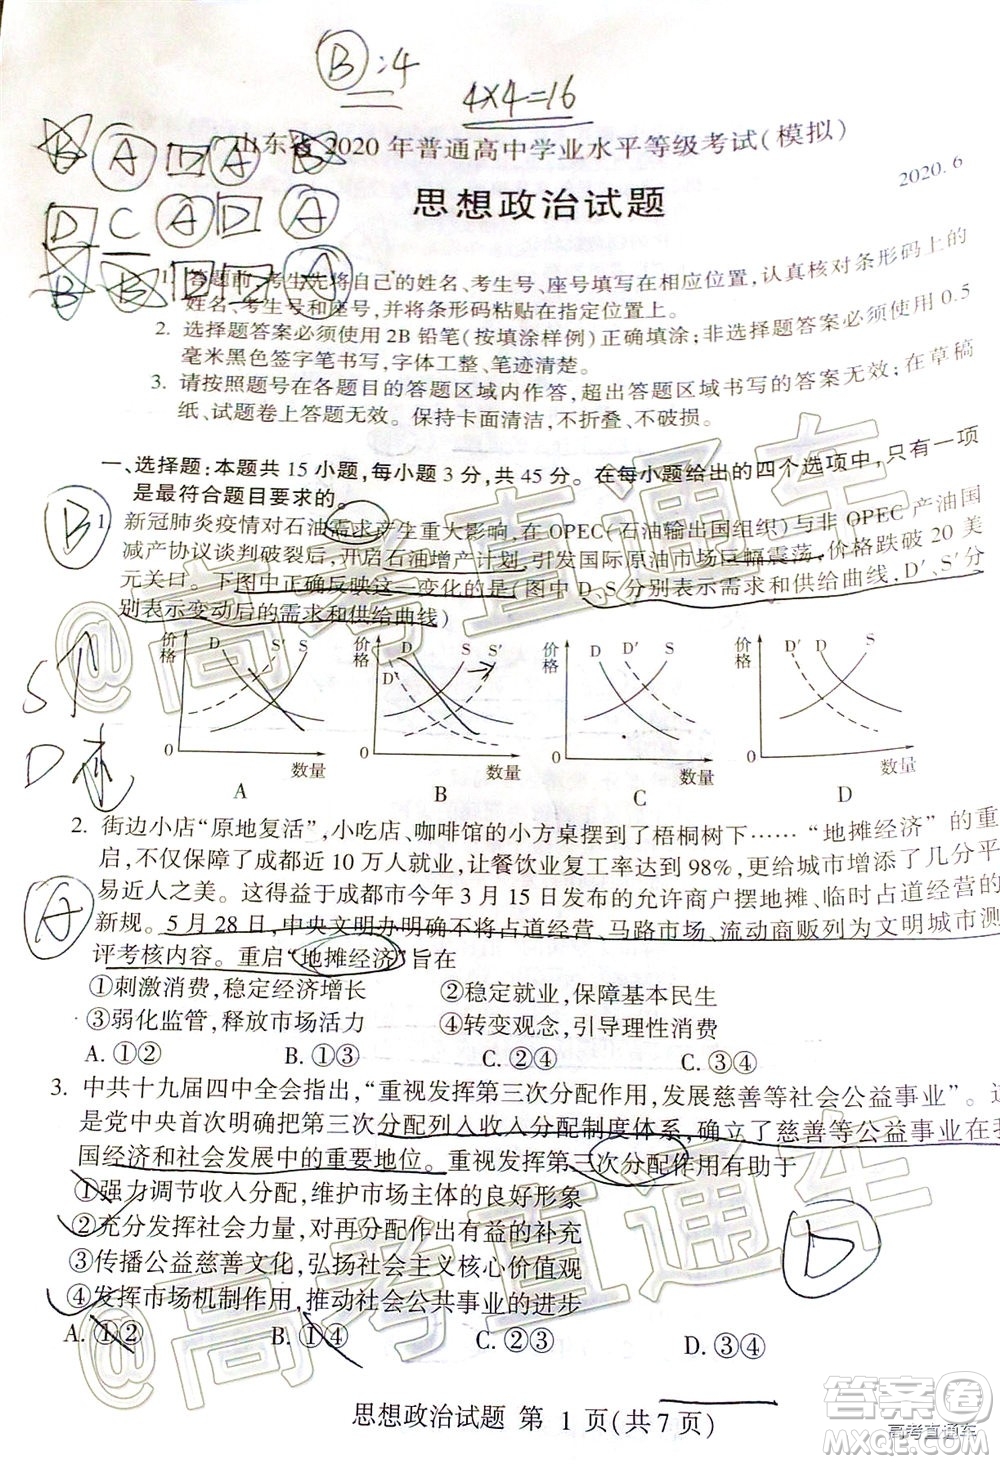 B:4
4×4=16
山东省 2020 年普通高中学业水平等级考试(模拟)
2020. 6
思想政治试题
B A D B
D C A D A
B B D D A
1. 答题前,考生先将自己的姓名、考生号、座号填写在相应位置,认真核对条形码上的
姓名、考生号和座号,并将条形码粘贴在指定位置上。
2. 选择题答案必须使用 2B 铅笔(按填涂样例)正确填涂;非选择题答案必须使用 0.5
毫米黑色签字笔书写,字体工整、笔迹清楚。
3. 请按照题号在各题目的答题区域内作答,超出答题区域书写的答案无效;在草稿
纸、试题卷上答题无效。保持卡面清洁,不折叠、不破损。
一、选择题:本题共 15 小题,每小题 3 分,共 45 分。在每小题给出的四个选项中,只有一项
是最符合题目要求的。
B
1. 新冠肺炎疫情对石油需求产生重大影响,在 OPEC(石油输出国组织)与非 OPEC 产油国
减产协议谈判破裂后,开启石油增产计划,引发国际原油市场巨幅震荡,价格跌破 20 美
元关口。下图中正确反映这一变化的是(图中 D、S 分别表示需求和供给曲线,D′、S′分
别表示变动后的需求和供给曲线)
S个
D
价格 D S′ S 0 数量
价格 D D′ S S′ 0 数量
价格 D D′ S 0 数量
价格 D′ D S 0 数量
A B C D
2. 街边小店“原地复活”,小吃店、咖啡馆的小方桌摆到了梧桐树下……“地摊经济”的重
启,不仅保障了成都近 10 万人就业,让餐饮业复工率达到 98%,更给城市增添了几分平
易近人之美。这得益于成都市今年 3 月 15 日发布的允许商户摆地摊、临时占道经营的
A
新规。5 月 28 日,中央文明办明确不将占道经营、马路市场、流动商贩列为文明城市测
评考核内容。重启“地摊经济”旨在
①刺激消费,稳定经济增长 ②稳定就业,保障基本民生
③弱化监管,释放市场活力 ④转变观念,引导理性消费
A. ①② B. ①③ C. ②④ D. ③④
3. 中共十九届四中全会指出,“重视发挥第三次分配作用,发展慈善等社会公益事业”。这
是党中央首次明确把第三次分配列入收入分配制度体系,确立了慈善等公益事业在我
国经济和社会发展中的重要地位。重视发挥第三次分配作用有助于
①强力调节收入分配,维护市场主体的良好形象
②充分发挥社会力量,对再分配作出有益的补充
③传播公益慈善文化,弘扬社会主义核心价值观
④发挥市场机制作用,推动社会公共事业的进步
D
A. ①② B. ①④ C. ②③ D. ③④
思想政治试题 第 1 页(共 7 页)
@高考直通车
@高考直通车
答案圈
MXQE.COM
高考直通车